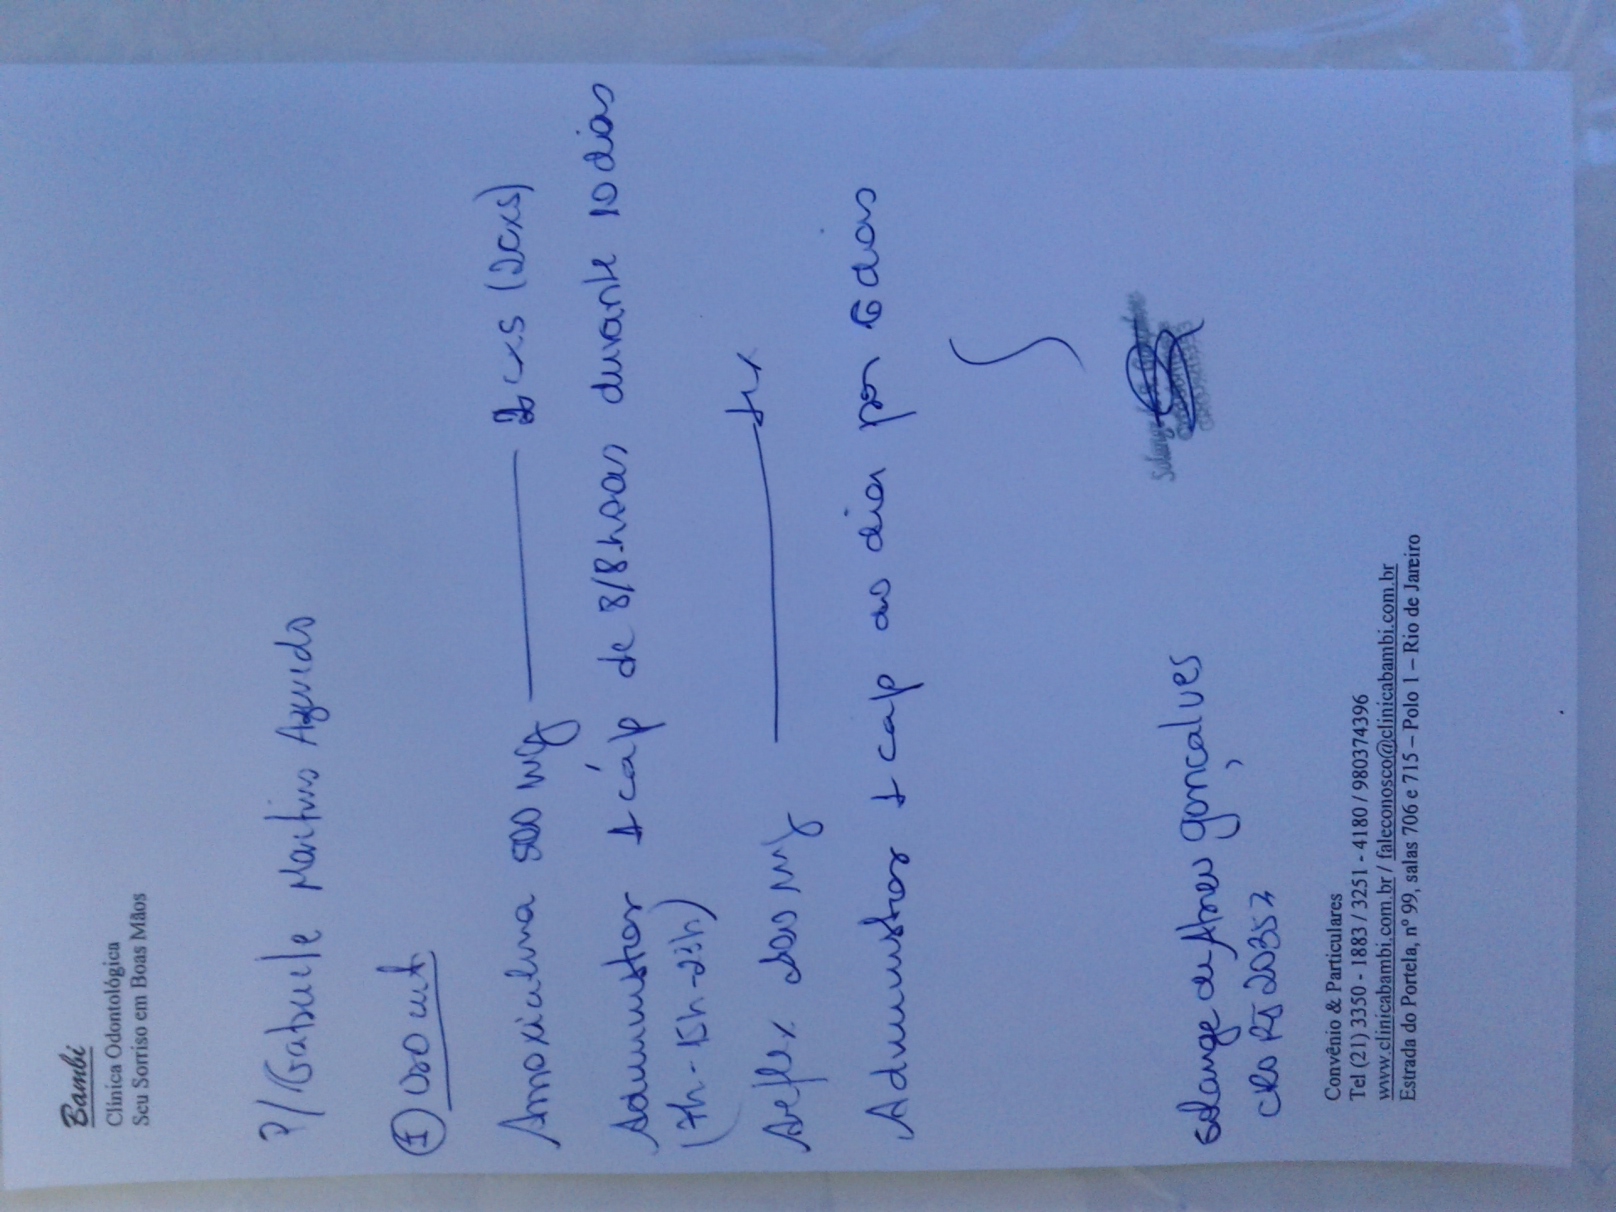 Bambi
Clínica Odontológica
Seu Sorriso em Boas Mãos
P/ Gabriele Martins Azevedo
① Uso int
Amoxicilina 500 mg — 2 cxs (2cxs)
Administrar 1 cáp de 8/8 horas durante 10 dias
(7h-15h-23h)
mg — 1cx
Administrar 1 cap ao dia por 6 dias
Solange
Solange de Abreu Gonçalves
CRO RJ 20353
Convênio & Particulares
Tel (21) 3350 - 1883 / 3251 - 4180 / 980374396
www.clinicabambi.com.br / faleconosco@clinicabambi.com.br
Estrada do Portela, nº 99, salas 706 e 715 – Polo 1 – Rio de Janeiro